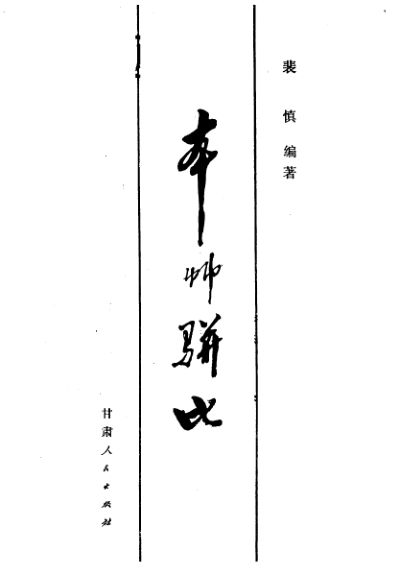 裴慎编著
本艸骈比
甘肃人民出版社